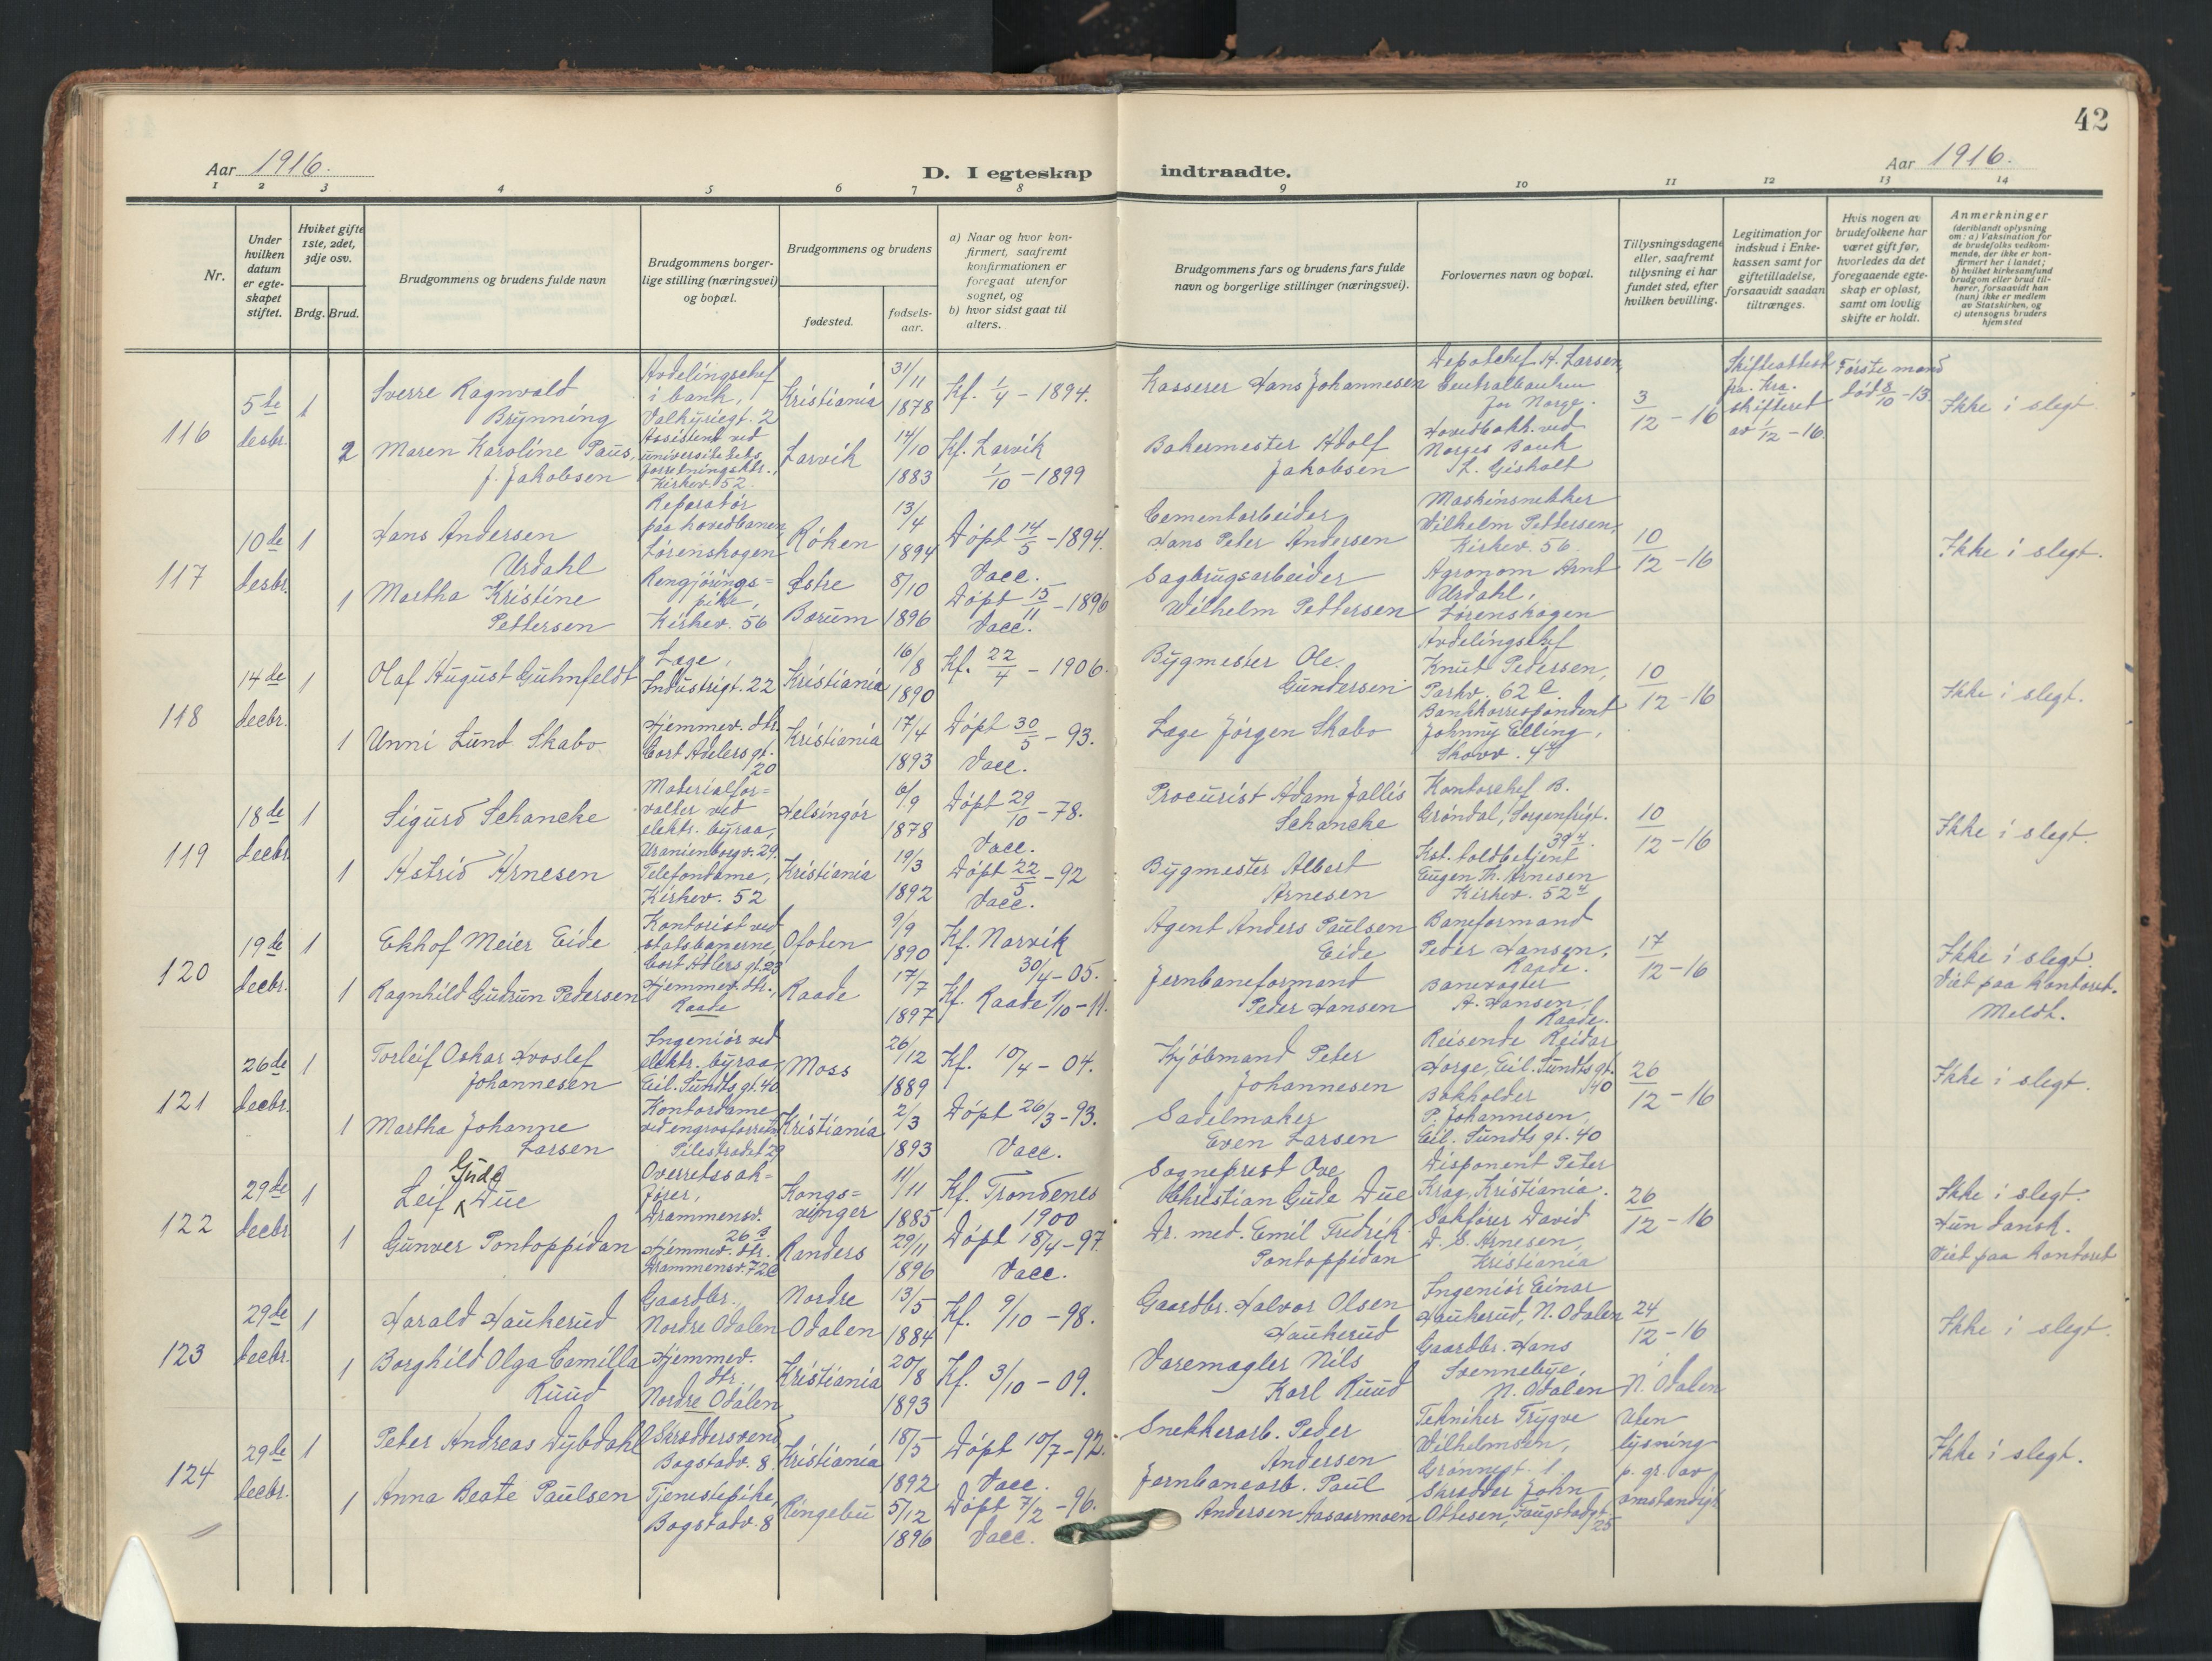 42
Aar 1916.
D. I egteskap indtraadte.
Aar 1916.
1 2 3 4 5 6 7 8 9 10 11 12 13 14
Nr.
Under hvilken datum er egteskapet stiftet.
Hvilket gifte 1ste, 2det, 3dje osv.
Brdg. Brud.
Brudgommens og brudens fulde navn
Brudgommens borgerlige stilling (næringsvei) og bopæl.
Brudgommens og brudens
fødested.
fødselsaar.
a) Naar og hvor konfirmert, saafremt konfirmationen er foregaat utenfor sognet, og
b) hvor sidst gaat til alters.
Brudgommens fars og brudens fars fulde navn og borgerlige stillinger (næringsvei).
Forlovernes navn og bopæl.
Tillysningsdagene eller, saafremt tillysning ei har fundet sted, efter hvilken bevilling.
Legitimation for indskud i Enkekassen samt for giftetilladelse, forsaavidt saadan tiltrænges.
Hvis nogen av brudefolkene har været gift før, hvorledes da det foregaaende egteskap er opløst, samt om lovlig skifte er holdt.
Anmerkninger
(deriblandt oplysning om: a) Vaksination for de brudefolks vedkommende, der ikke er konfirmert her i landet; b) hvilket kirkesamfund brudgom eller brud tilhører, forsaavidt han (hun) ikke er medlem av Statskirken, og c) utensogns bruders hjemsted
116
5te desbr.
1
Sverre Ragnvald
Brynning
Avdelingschef
i bank,
Valkyriegt. 2
Kristiania
31/11
1878
Kf. 1/4 - 1894.
Kasserer Hans Johannesen
Depotchef H. Larsen,
Centralbanken
for Norge.
3/12 - 16
Skifteattest
fra Kra.
skifteret
av 1/12 - 16.
Første mand
død 8/10 - 13
Ikke i slegt.
2
Maren Karoline Paus,
f. Jakobsen
Assistent ved
universitetets
forretningsktr.,
Kirkev. 52.
Larvik
14/10
1883
Kf. Larvik
1/10 - 1899
Bakermester Adolf
Jakobsen
Hovedbokh. ved
Norges Bank
L. Gisholt
117
10de desbr.
1
Hans Andersen
Urdahl
Reparatør
paa hovedbanen,
Lørenskogen
Røken
13/4
1894
Døpt 14/5 - 1894.
Vacc.
Cementarbeider
Hans Peter Andersen
Maskinsnekker
Vilhelm Pettersen,
Kirkev. 56.
10/12 - 16
Ikke i slegt.
1
Martha Kristine
Pettersen
Rengjørings=
pike,
Kirkev. 56
Østre
Bærum
8/10
1896
Døpt 15/11 - 1896
Vacc.
Sagbrugsarbeider
Wilhelm Pettersen
Agronom Arnt
Urdahl,
Lørenskogen
118
14de decbr.
1
Olaf August Guhnfeldt
Læge,
Industrigt. 22
Kristiania
16/8
1890
Kf. 22/4 - 1906.
Bygmester Ole
Gundersen
Avdelingschef
Knut Pedersen,
Parkv. 62 C.
10/12 - 16
Ikke i slegt.
1
Unni Lund Skabo
Hjemmev. dtr.
Cort Adelers gt.
20
Kristiania
17/4
1893
Døpt 30/5 - 93.
Vacc.
Læge Jørgen Skabo
Bankkorrespondent
Johnny Elling,
Skovv. 4
119
18de decbr
1
Sigurd Schancke
Materialfor=
valter ved
elektr. byraa,
Uranienborgv. 29.
Helsingør
6/9
1878
Døpt 29/10 - 78.
Vacc.
Procurist Adam Jallis
Schancke
Kontorchef B.
Grøndal, Sorgenfrigt.
39 4.
10/12 - 16
Ikke i slegt.
1
Astrid Arnesen
Telefondame,
Kirkev. 52
Kristiania
19/3
1892
Døpt 22/5 - 92
Vacc.
Bygmester Albert
Arnesen
Kst. toldbetjent
Eugen Th. Arnesen
Kirkev. 52 4
120
19de decbr.
1
Ekhof Meier Eide
Kontorist ved
statsbanerne,
Cort Adlers gt. 23
Ofoten
9/9
1890
Kf. Narvik
30/4 - 05.
Agent Anders Paulsen
Eide
Baneformand
Peder Hansen,
Raade.
17/12 - 16
Ikke i slegt.
Viet paa kontoret.
Meldt.
1
Ragnhild Gudrun Pedersen
Hjemmev. dtr.,
Raade
Raade
17/7
1897
Kf. Raade 1/10 - 11.
Jernbaneformand
Peder Hansen
Banevogter
A. Hansen,
Raade.
121
26de decbr.
1
Torleif Oskar Hvoslef
Johannesen
Ingeniør ved
elektr. byraa,
Eil. Sundts gt. 40
Moss
26/12
1889
Kf. 10/4 - 04.
Kjøbmand Peter
Johannesen
Reisende Reidar
Horge, Eil. Sundts gt.
40
26/12 - 16
Ikke i slegt.
1
Martha Johanne
Larsen
Kontordame
ved engrosforretn.
Pilestrædet 29
Kristiania
2/3
1893
Døpt 26/3 - 93.
Vacc.
Sadelmaker
Even Larsen
Bokholder
P. Johannesen,
Eil. Sundts gt. 40
122
29de decbr
1
Gude
Leif Due
Overretssak=
fører,
Drammensv.
26 B
Kongs=
vinger
11/11
1885
Kf. Trondenes
1900
Sogneprest Ove
Christian Gude Due
Disponent Peter
Krag, Kristiania.
26/12 - 16
Ikke i slegt.
Hun dansk.
Viet paa kontoret
1
Gunver Pontoppidan
Hjemmev. dtr.
Drammensv. 72 C
Randers
29/11
1896
Døpt 18/4 - 97.
Vacc.
Dr. med. Emil Fredrik
Pontoppidan
Sakfører David
D. S. Arnesen,
Kristiania
123
29de decbr.
1
Harald Haukerud
Gaardbr.,
Nordre Odalen
Nordre
Odalen
13/5
1884
Kf. 9/10 - 98.
Gaardbr. Halvor Olsen
Haukerud
Ingeniør Einar
Haukerud, N. Odalen
24/12 - 16
N. Odalen
Ikke i slegt.
1
Borghild Olga Camilla
Ruud
Hjemmev.
dtr.
Nordre Odalen
Kristiania
20/8
1893
Kf. 3/10 - 09.
Varemægler Nils
Karl Ruud
Gaardbr. Hans
Svennebye,
N. Odalen
124
29de decbr.
1
Peter Andreas Dybdahl
Skræddersvend
Bogstadv. 8.
Kristiania
18/5
1892
Døpt 10/7 - 92.
Vacc.
Snekkerarb. Peder
Andersen
Tekniker Trygve
Wilhelmsen,
Grønnegt. 1
Uten
lysning
p. gr. av
omstændigh.
Ikke i slegt.
1
Anna Beate Paulsen
Tjenestepike,
Bogstadv. 8
Ringebu
5/12
1896
Døpt 7/2 - 96.
Vacc.
Jernbanearb. Paul
Andersen Aasaarmoen
Skrædder John
Ottesen, Tougstadgt.
25